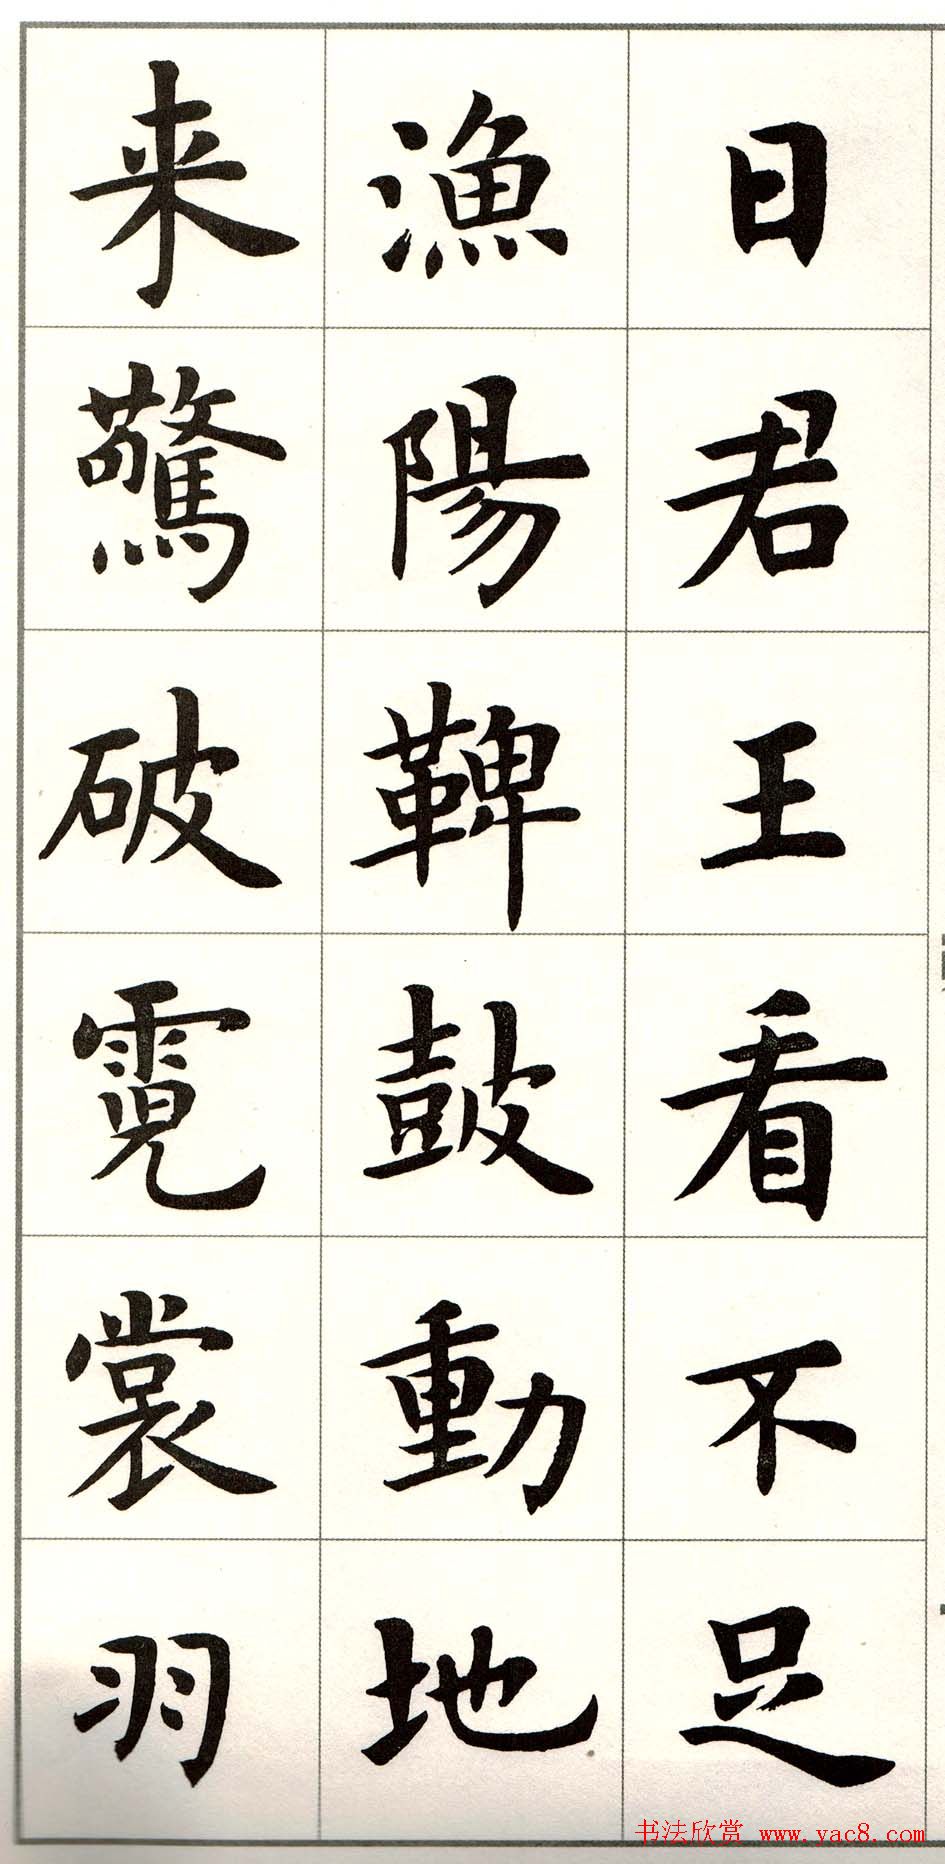 日君王看不足
漁陽鞞鼓動地
来驚破霓裳羽
书法欣赏 www.yac8.com